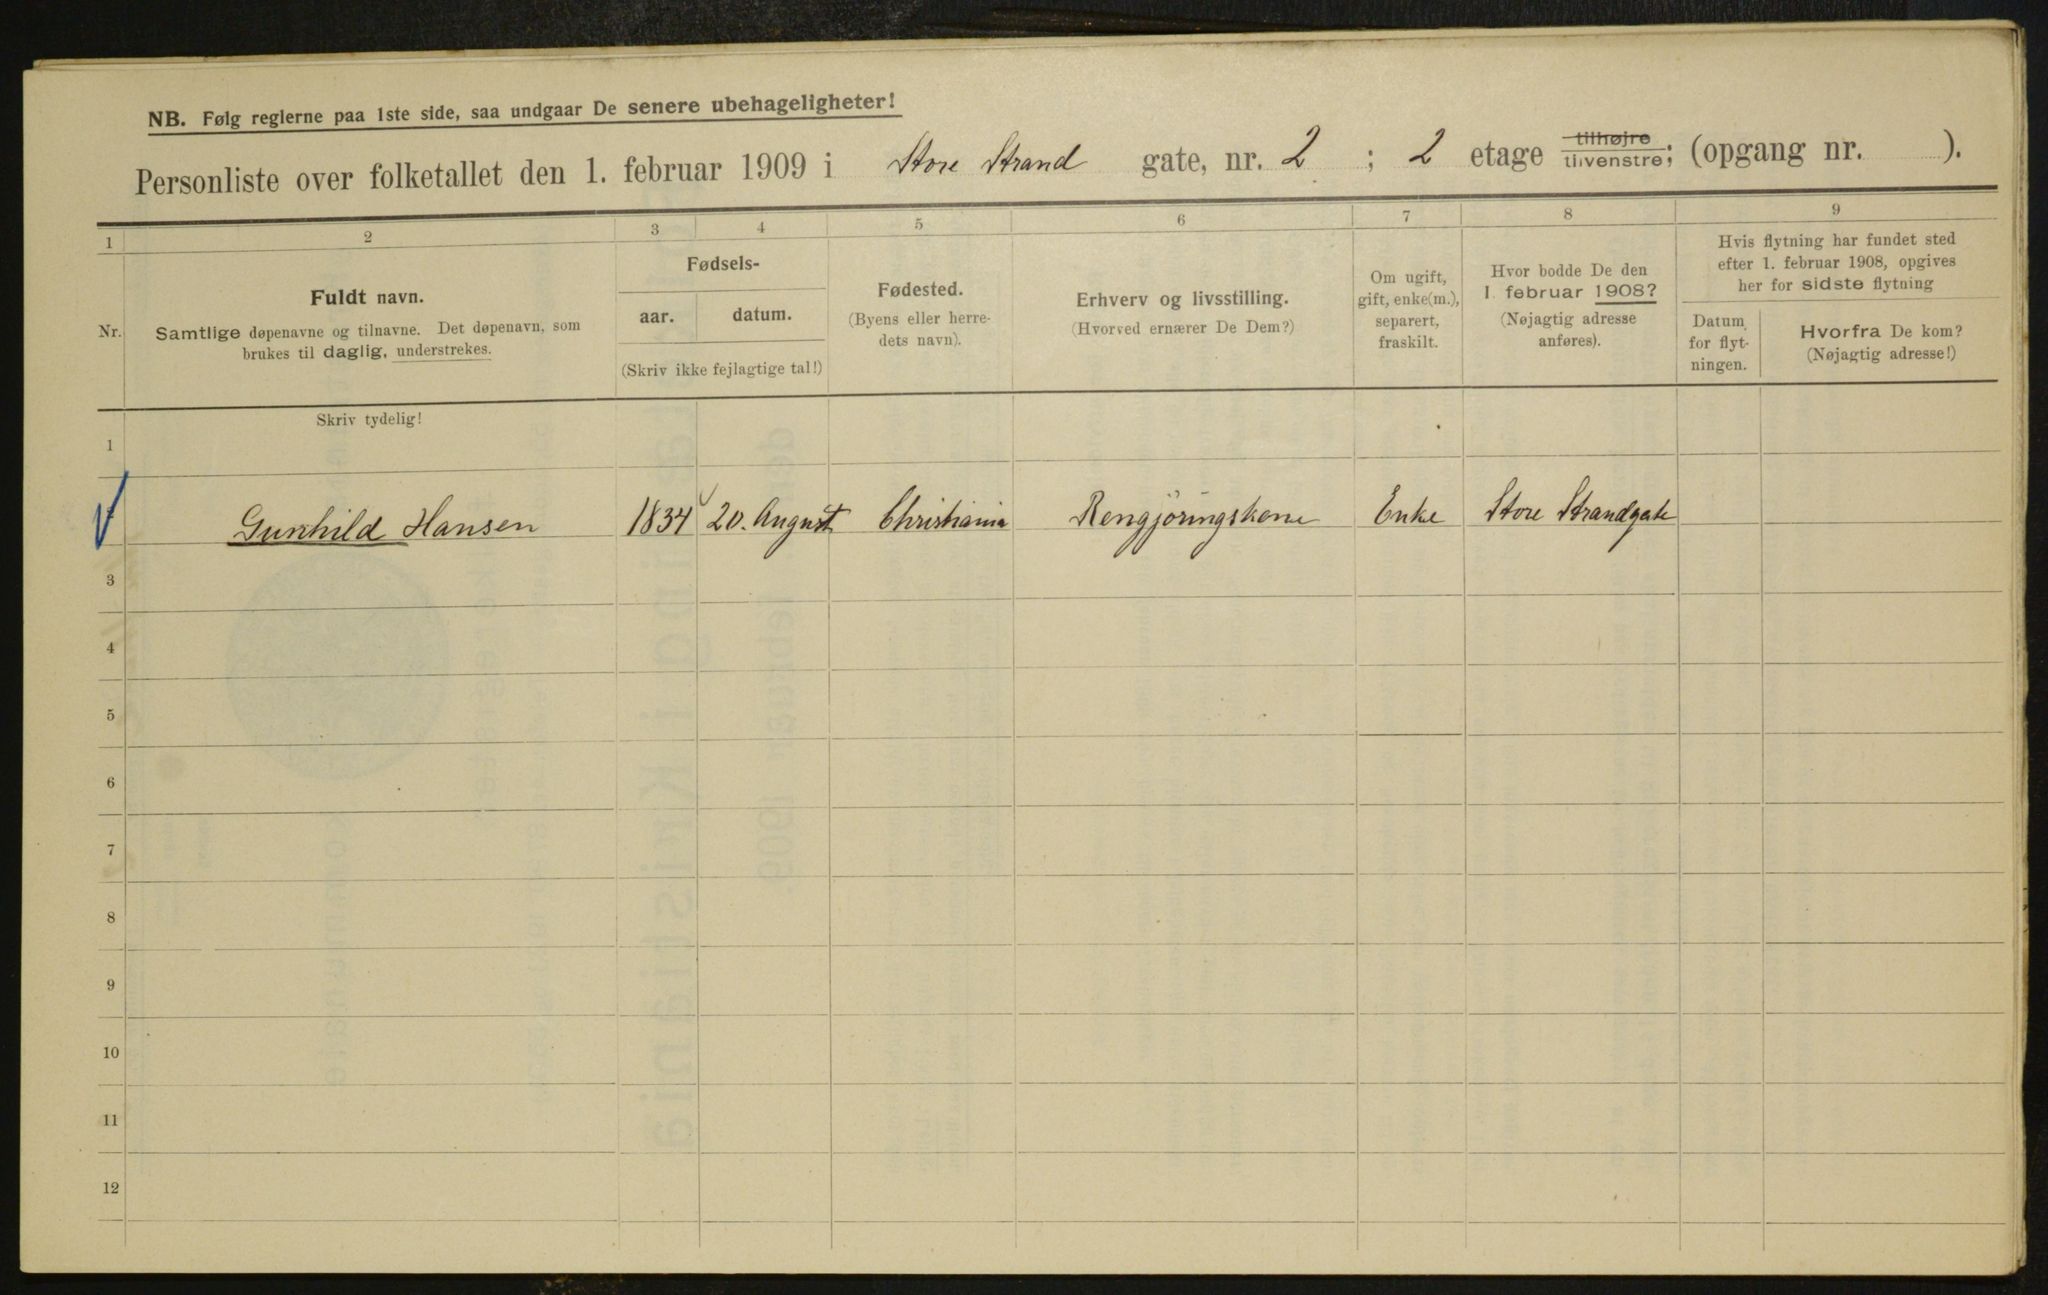 NB. Følg reglerne paa 1ste side, saa undgaar De senere ubehageligheter!
Personliste over folketallet den 1. februar 1909 i Store Strand gate, nr. 2 ; 2 etage tilhøjre tilvenstre; (opgang nr. ).
1 2 3 4 5 6 7 8 9
Nr.
Fuldt navn.
Samtlige døpenavne og tilnavne. Det døpenavn, som
brukes til daglig, understrekes.
Fødsels-
aar. datum.
(Skriv ikke fejlagtige tal!)
Fødested.
(Byens eller herre-
dets navn).
Erhverv og livsstilling.
(Hvorved ernærer De Dem?)
Om ugift,
gift, enke(m.),
separert,
fraskilt.
Hvor bodde De den
1. februar 1908?
(Nøjagtig adresse
anføres).
Hvis flytning har fundet sted
efter 1. februar 1908, opgives
her for sidste flytning
Datum
for flyt-
ningen.
Hvorfra De kom?
(Nøjagtig adresse!)
Skriv tydelig!
1
Gunhild Hansen 1834 20. August Christiania Rengjöringskone Enke Store Strandgate
3
4
5
6
7
8
9
10
11
12